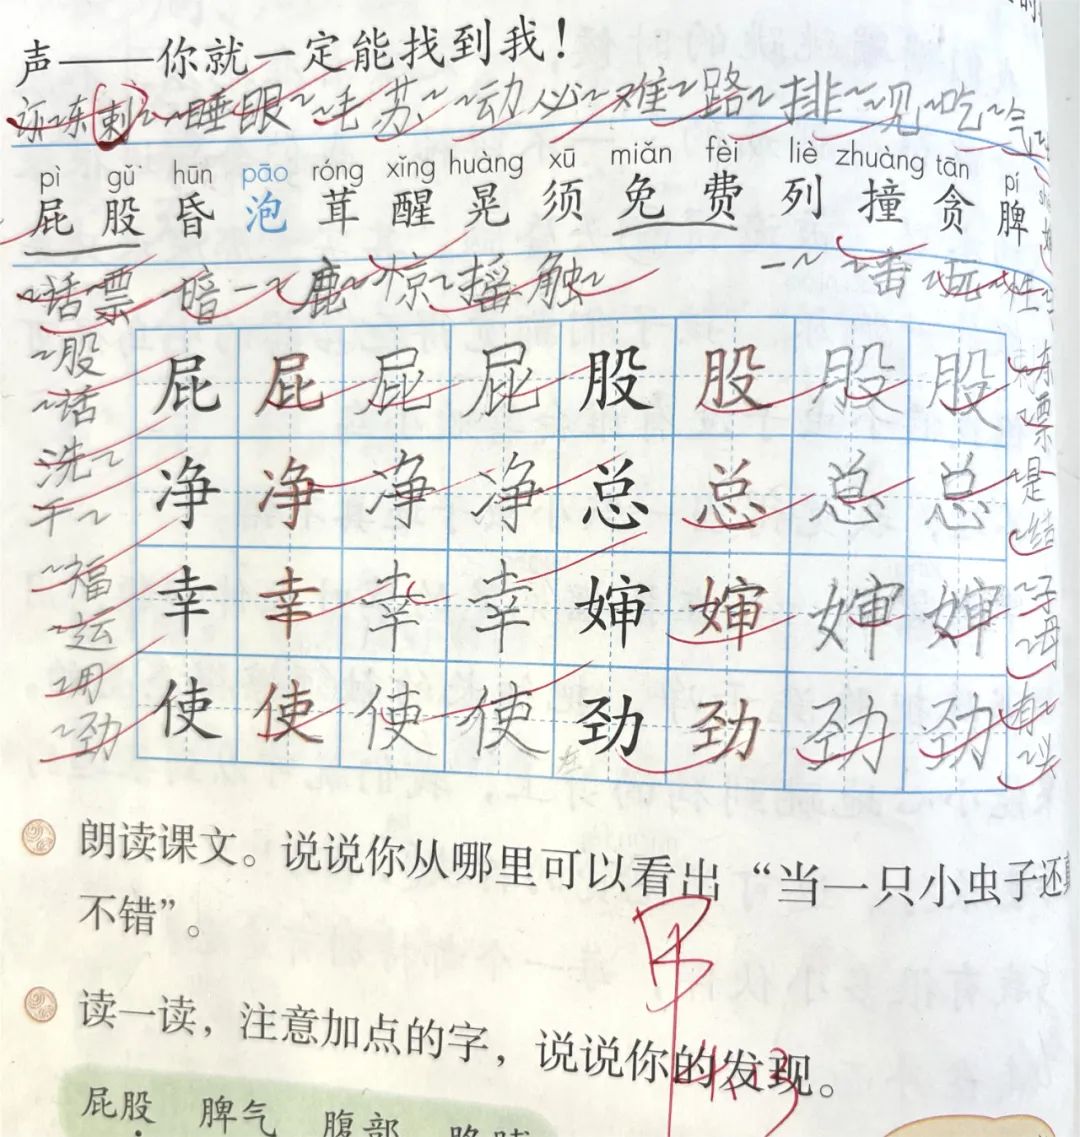 声——你就一定能找到我！
睡眼~ ~毛 苏~ ~动 必~ 难~ 路~ 排~ ~见 ~吃 ~气
pì gǔ hūn pāo róng xǐng huàng xū miǎn fèi liè zhuàng tān pí
屁 股 昏 泡 茸 醒 晃 须 免 费 列 撞 贪 脾
~话 票 暗一~ 鹿~ 惊~ 摇~ 触~ 一~ ~玩 性~
~股 屁 屁 屁 屁 股 股 股 股
~话
洗~ 净 净 净 净 总 总 总 总 ~是
干~ ~结
~福 幸 幸 幸 幸 婶 婶 婶 婶 ~子
~运 ~母
~用 使 使 使 使 劲 劲 劲 劲 有~
~劲 ~头
朗读课文。说说你从哪里可以看出“当一只小虫子还真
不错”。
甲
读一读，注意加点的字，说说你的发现。
4.3
屁股 脾气 腹部